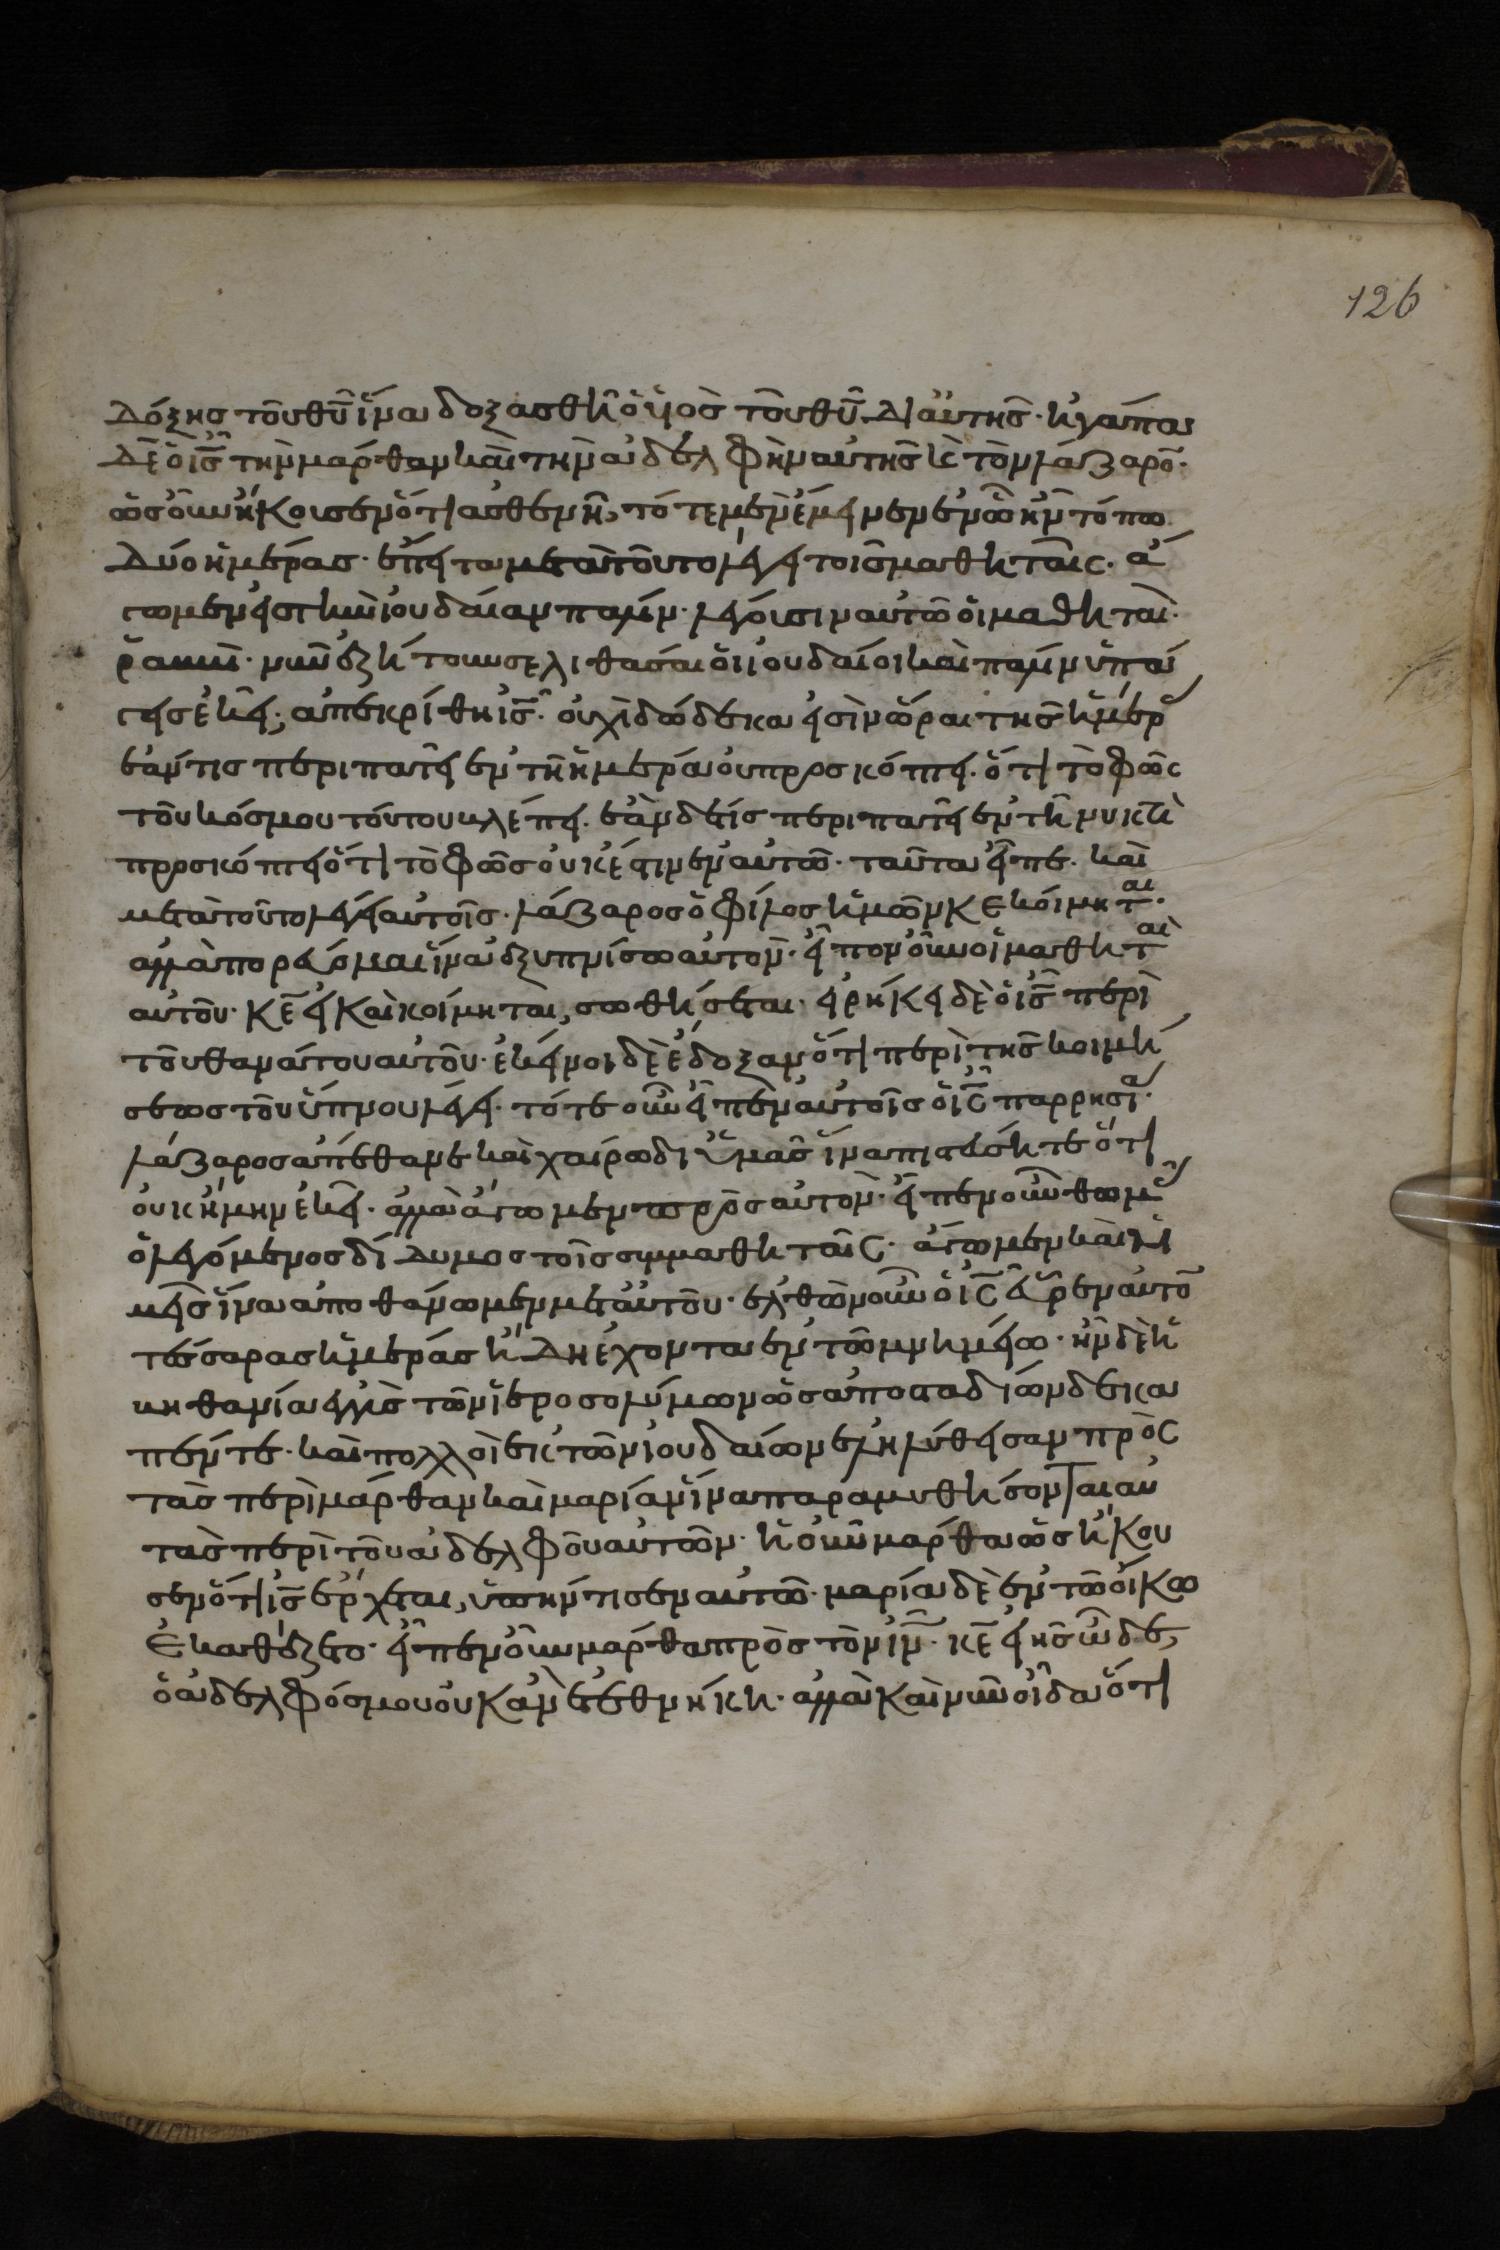 126
δόξης τοῦ θῦ ἵνα δοξασθῆ ὁ υἱὸς τοῦ θῦ δι αὐτῆς· ἠγάπα
δὲ ὁ ις τὴν μάρθαν καὶ τὴν ἀδελφὴν αὐτῆς κ τὸν λάζαρο·
ὡς οὖν ἤκουσεν ὅτι ἀσθενῆ, τότε μὲν ἔμεινεν ἐν ὧ ἦν τόπω
δύο ἡμέρας· ἔπειτα μετὰ τοῦτο λέγει τοῖς μαθηταῖς· ἄ
γωμεν εἰς τὴν ἰουδαίαν πάλιν· λέγουσιν αὐτῶ οἱ μαθηταί·
ῥαββὶ· νῦν ἐζήτουν σε λιθάσαι οἱ ἰουδαῖοι καὶ πάλιν ὑπά
γεις ἐκεῖ; ἀπεκρίθη ις· οὐχὶ δώδεκα εἰσὶν ὧραι τῆς ἡμέρ
ἐάν τις περιπατεῖ ἐν τῆ ἡμέρα οὐ προσκόπτει· ὅτι τὸ φῶς
τοῦ κόσμου τούτου βλέπει· ἐὰν δέ τίς περιπατεῖ ἐν τῆ νυκτὶ
προσκόπτει ὅτι τὸ φῶς οὐκ ἔστιν ἐν αὐτῶ· ταῦτα εἶπε· καὶ
μετὰ τοῦτο λέγει αὐτοῖς· λάζαρος ὁ φίλος ἡμῶν κεκοίμηται·
ἀλλὰ πορεύομαι ἵνα ἐξυπνίσω αὐτόν· εἶπον οὖν οἱ μαθηταὶ
αὐτοῦ· κε εἰ κεκοίμηται, σωθήσεται· εἰρήκει δὲ ὁ ις περὶ
τοῦ θανάτου αὐτοῦ· ἐκεῖνοι δὲ ἔδοξαν ὅτι περὶ τῆς κοιμή
σεως τοῦ ὕπνου λέγει· τότε οὖν εἶπεν αὐτοῖς ὁ ις παρρησία·
λάζαρος ἀπέθανε καὶ χαίρω δι ὑμᾶς ἵνα πιστεύσητε ὅτι
οὐκ ἤμην ἐκεῖ· ἀλλὰ ἄγωμεν πρὸς αὐτόν· εἶπεν οὖν θωμᾶ
ὁ λεγόμενος δίδυμος τοῖς συμμαθηταῖς· ἄγωμεν καὶ ἡ
μεῖς ἵνα ἀποθάνωμεν μετ αὐτοῦ· ἐλθὼν οὖν ὁ ις εὗρεν αὐτὸ
τέσσαρας ἡμέρας ἤδη ἔχοντα ἐν τῶ μνημείω· ἦν δὲ ἡ
βηθανία ἐγγὺς τῶν ἱεροσολύμων ὡς ἀπὸ σταδίων δεκα
πέντε· καὶ πολλοὶ ἐκ τῶν ἰουδαίων ἐληλύθεισαν πρὸς
τὰς περὶ μάρθαν καὶ μαρίαν ἵνα παραμυθήσονται αὐ
τὰς περὶ τοῦ ἀδελφοῦ αὐτῶν· ἡ οὖν μάρθα ὡς ἤκου
σεν ὅτι ις ἔρχεται, ὑπήντισεν αὐτῶ· μαρία δὲ ἐν τῶ οἴκω
ἐκαθέζετο· εἶπεν οὖν μάρθα πρὸς τὸν ιν· κε εἰ ῆς ὧδε,
ὁ ἀδελφός μου οὐκ ἂν ἐτεθνήκη· ἀλλὰ καὶ νῦν οἶδα ὅτι